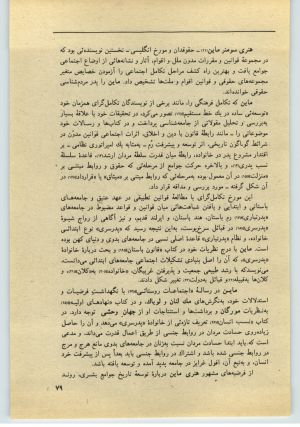 هنری سومنر ماین(۱)ـ حقوقدان و مورخ انگلیسی ـ نخستین نویسنده‌ئی بود که
در مجموعهٔ قوانین و مقررات مدون ملل و اقوام، آثار و نشانه‌هائی از اوضاع اجتماعی
جوامع یافت و بهترین راه کشف مراحل تکامل اجتماعی را آزمودن خصایص متغیر
مجموعه‌های حقوقی و قوانین اقوام و ملت‌ها تشخیص داد. ماین را پدر مردم‌شناسی
حقوقی خوانده‌اند.
ماین که تکامل فرهنگی را، مانند برخی از نویسندگان تکامل‌گرای همزمان خود
«توسعه‌ئی ساده در یک خط مستقیم» تصور می‌کرد، در تحقیقات خود با علاقهٔ بسیار
به‌بررسی و تحلیل مقولاتی از جامعه‌شناسی پرداخت و در کتاب‌ها و رسالات خود
موضوعاتی را ـ مانند رابطهٔ قانون با دین و اخلاق، اثرات اجتماعی قوانین مدوّن در
شرائط گوناگون تاریخی، اثر توسعه و پیشرفت رُم ـ به‌مثابه یک امپراتوری نظامی ـ بر
اقتدار مشروع پدر در خانواده، رابطهٔ میان قدرت سلطهٔ مردان ارشد، قاعدهٔ سلسلهٔ
نسب پدری، و بالاخره حرکت جوامع از مرحله‌ئی که حقوق و روابط مبتنی بر
«منزلت» در آن معمول بوده به‌مرحله‌ئی که روابط مبتنی بر «میثاق» یا «قرارداد» در
آن شکل گرفته ـ مورد بررسی و مداقه قرار داد.
این مورخ تکامل‌گرای با مطالعهٔ قوانین تطبیقی در عهد عتیق و جامعه‌های
باستانی و ابتدائی و یافتن شباهت‌هائی میان قوانین و قواعد مضبوط در جامعه‌های
«پدرتباری» رم باستان، هند باستان، و ایرلند قدیم، و نیز آگاهی از رواج شیوهٔ
«پدرسری» در قبائل سرخ‌پوست، به‌این نتیجه رسید که «پدرسری» نوع ابتدائی
خانواده، و نظام «پدرتباری» قاعدهٔ اصلی نسبی در جامعه‌های بدوی و دنیای کهن بوده
است. ماین با درج نظریات خود در کتاب «قانون باستان» و بحث دربارهٔ خانوادهٔ
«پدرسری»، که آن را اصل بنیادی تشکیلات اجتماعی جامعه‌های ابتدائی می‌دانست،
می‌نویسد که با رشد طبیعی جمعیت و پذیرفتن غریبگان، «خانواده» به «کلان»،
کلان‌ها به «قبیله» و قبائل به «دولت» تغییر شکل دادند.
ماین در رسالهٔ «اجتماعات روستائی» با نگهداشت فرضیات و
استدلالات خود، به‌نگرش‌های مک لنان و لوباک، و در کتاب «نهادهای اولیه»
به‌نظریات مورگان و برداشت‌ها و استنتاجات او از جهان وحشی توجه دارد. در
کتاب «نسب انسان»، تعریف تازه‌ئی از خانوادهٔ «پدرسری» می‌دهد، و آن را حاصل
زیاده‌روی حسادت مردان در روابط جنسی از طریق اعمال قدرت می‌داند، و معتقد
است که باید ابتدا حسادت مردان نسبت به‌زنان در جامعه‌های بدوی مانع هرج و مرج
در روابط جنسی شده باشد و اشتراک در روابط جنسی باید بعداً پس از پیشرفت خرد
انسان، و به‌تبع آن، افول غرایز در جامعه پدید آمده و توسعه یافته باشد.
از فرضیه‌های مشهور هنری ماین دربارهٔ توسعهٔ تاریخ جوامع بشری، روند
۷۹